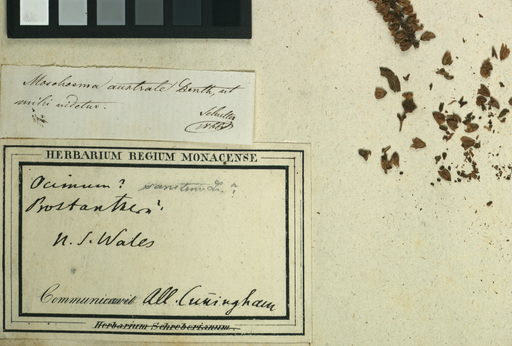 Moschosma australe Benth, ut
mihi videtur.
HERBARIUM REGIUM MONACENSE
Ocimum?
Prostanthera?
N. S. Wales
Communicavit All. Cuñingham
Herbarium Schreberianum.